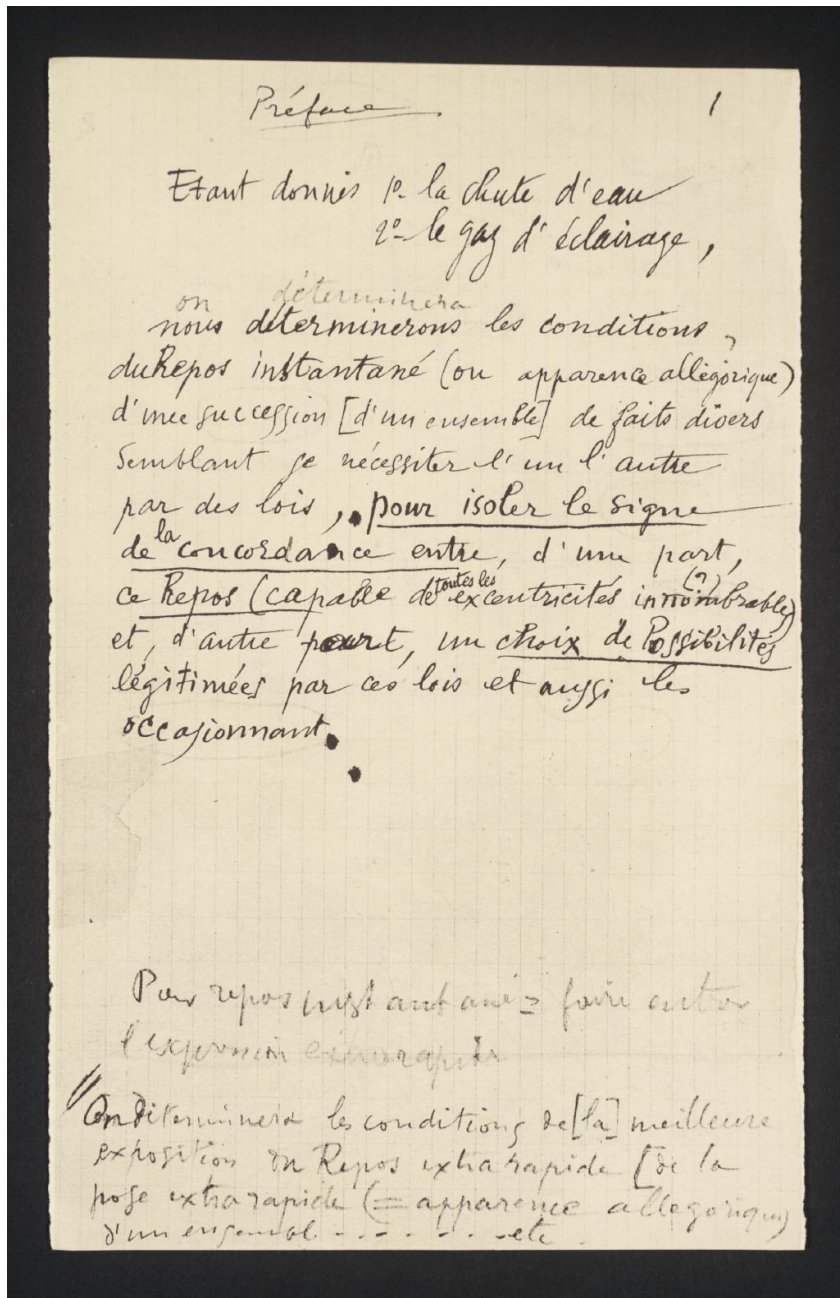 Préface 1
Etant donnés 1º- la chute d'eau
2º- le gaz d'éclairage,
on déterminera
nous déterminerons les conditions
du Repos instantané (ou apparence allégorique)
d'une succession [d'un ensemble] de faits divers
semblant se nécessiter l'un l'autre
par des lois, pour isoler le signe
de la concordance entre, d'une part,
ce Repos (capable de toutes les excentricités innombrables (?))
et, d'autre part, un choix de Possibilités
légitimées par ces lois et aussi les
occasionnant.
Pour repos instantané = faire entrer
l'expression extrarapide
On déterminera les conditions de [la] meilleure
exposition du Repos extra rapide [de la
pose extra rapide (= apparence allegorique)
d'un ensembl - - - - - - etc.